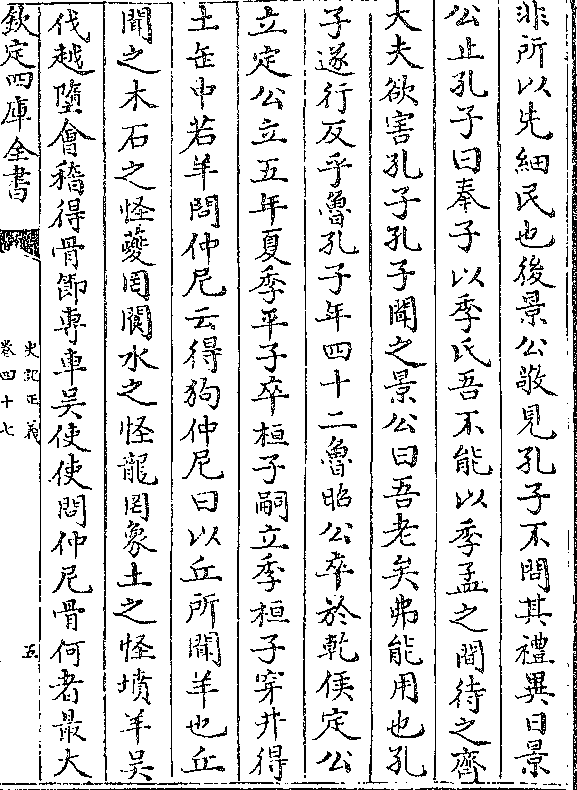 非所以先細民也後景公敬見孔子不問其禮異日景
公止孔子曰奉子以季氏吾不能以季孟之間待之齊
大夫欲害孔子孔子聞之景公曰吾老矣弗能用也孔
子遂行反乎魯孔子年四十二魯昭公卒於乾侯定公
立定公立五年夏季平子卒桓子嗣立季桓子穿井得
土缶中若羊問仲尼云得狗仲尼曰以丘所聞羊也丘
聞之木石之怪夔罔閬水之怪龍罔象土之怪墳羊吳
伐越墮會稽得骨節專車吳使使問仲尼骨何者最大
欽定四庫全書
史記正義
卷四十七
五